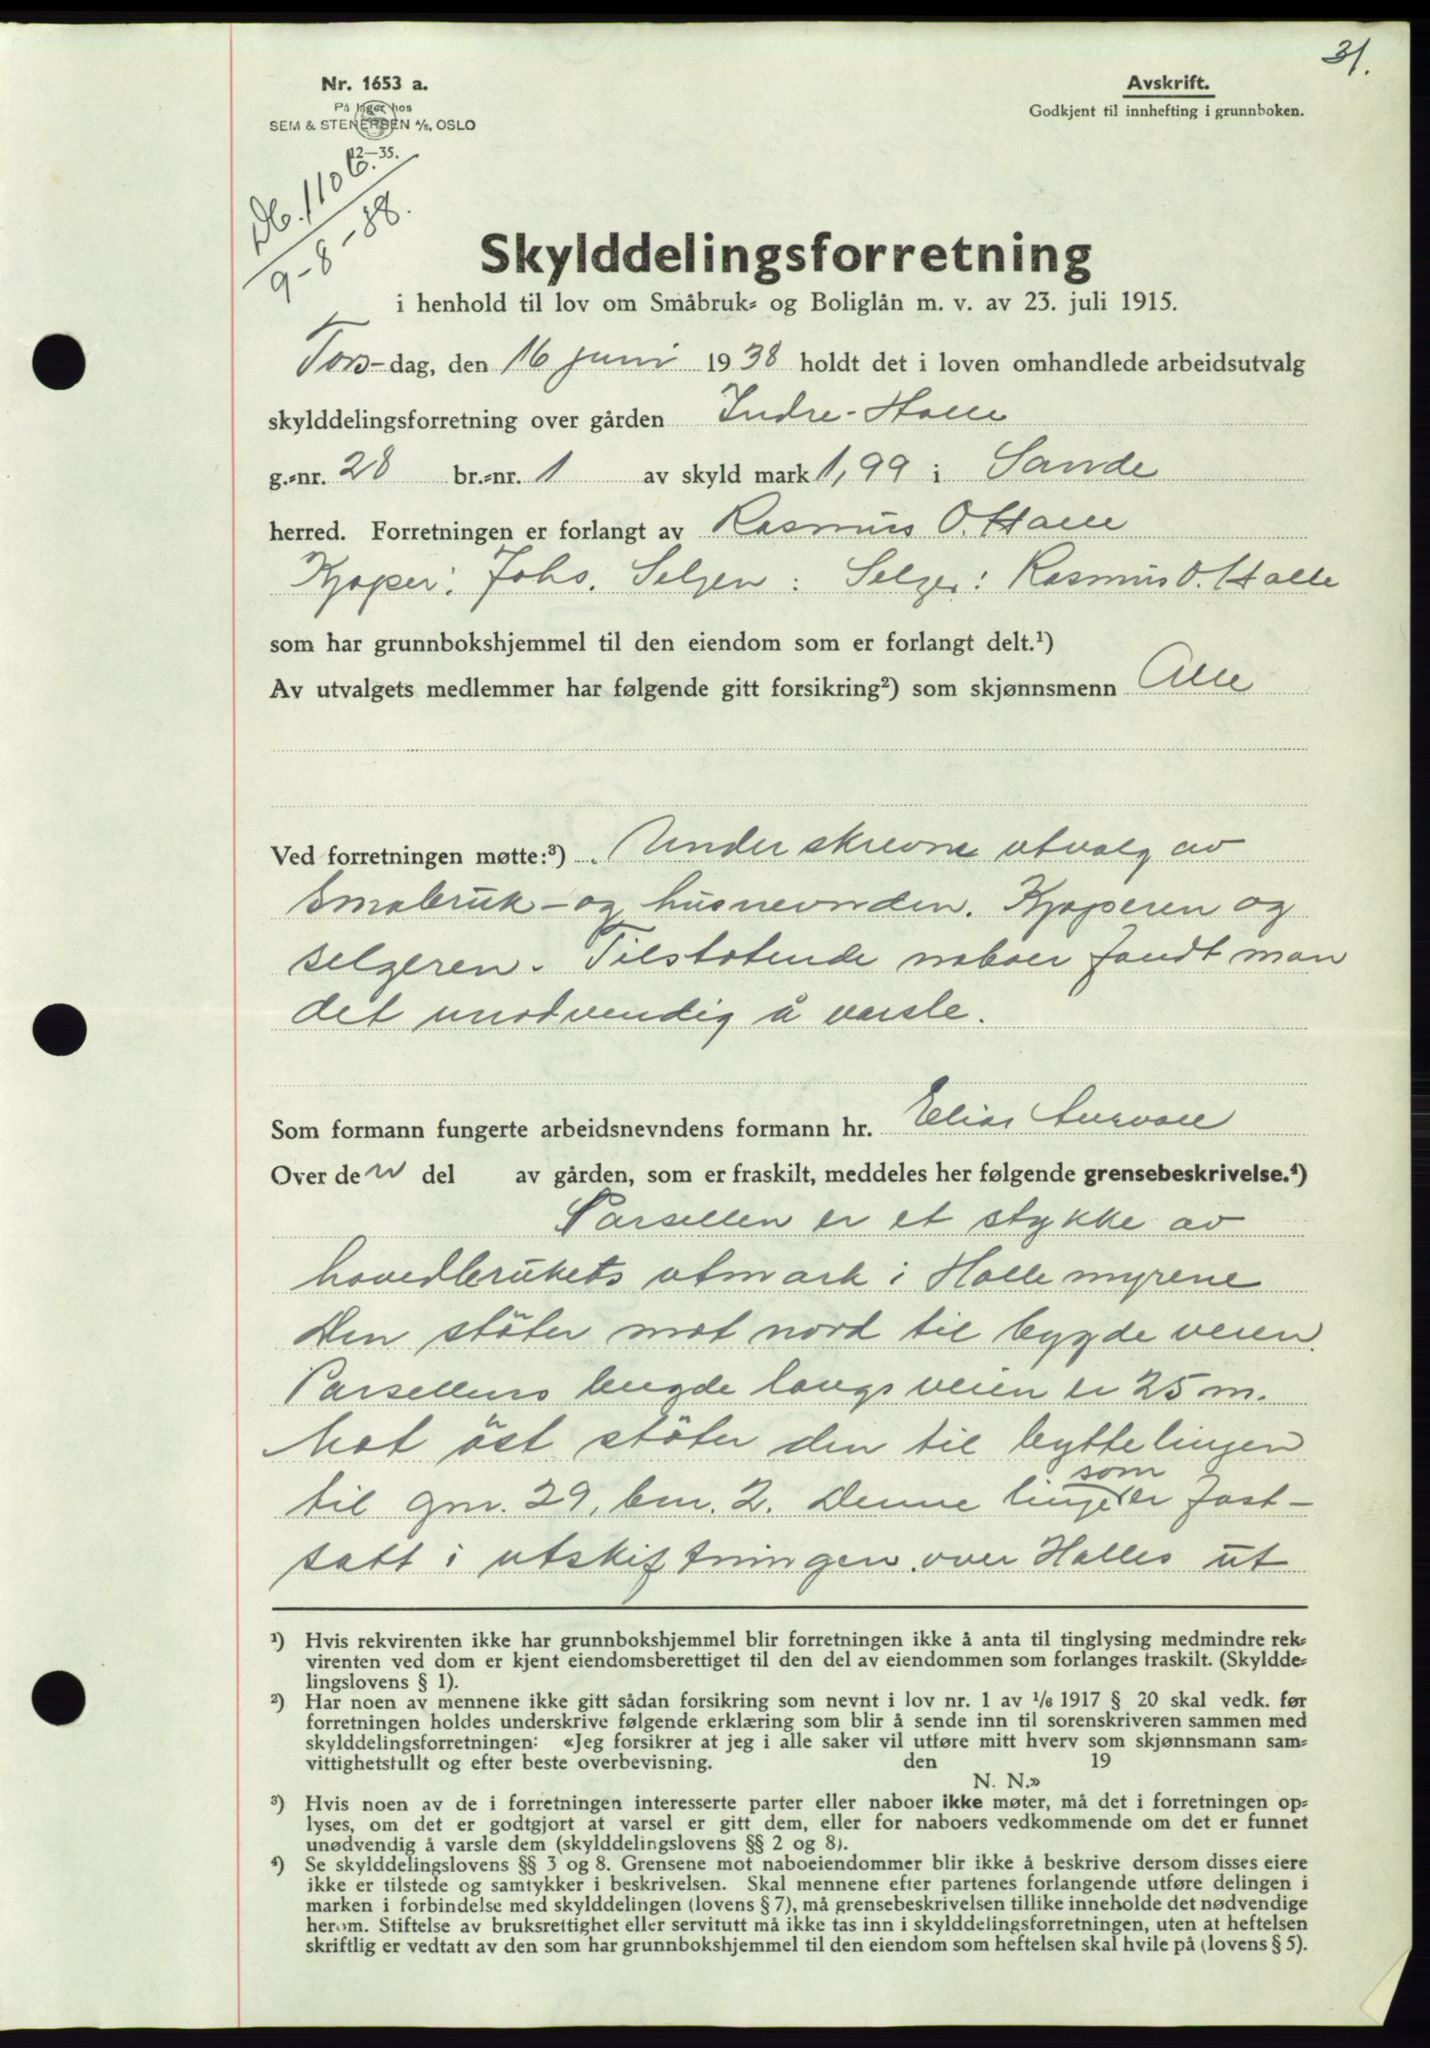 31.
Nr. 1653 a.
På lager hos
SEM & STENERSEN A/S, OSLO
12—35.
Avskrift.
Godkjent til innhefting i grunnboken.
Db. 1106.
9-8-38.
Skylddelingsforretning
i henhold til lov om Småbruk- og Boliglån m. v. av 23. juli 1915.
Tors-dag, den 16 juni 1938 holdt det i loven omhandlede arbeidsutvalg
skylddelingsforretning over gården Indre-Halle
g.-nr. 28 br.-nr. 1 av skyld mark 1,99 i Sande
herred. Forretningen er forlangt av Rasmus O. Halle
Kjøper: Johs. Seljen: Selger: Rasmus O. Halle
som har grunnbokshjemmel til den eiendom som er forlangt delt.¹)
Av utvalgets medlemmer har følgende gitt forsikring²) som skjønnsmenn Alle
Ved forretningen møtte:³) Underskrevne utvalg av
Småbruk- og husnevnden. Kjøperen og
selgeren. Tilstøtende naboer fandt man
det unødvendig å varsle.
Som formann fungerte arbeidsnevndens formann hr. Elias Aurvoll
Over den del av gården, som er fraskilt, meddeles her følgende grensebeskrivelse.⁴)
Parsellen er et stykke av
hovedbrukets utmark i Hallemyrene
Den støter mot nord til bygdeveien.
Parsellens lengde langs veien er 25 m.
Mot öst støter den til byttelinjen
til gnr. 29, bnr. 2. Denne linje som er fast-
satt i utskiftningen over Halles ut
¹) Hvis rekvirenten ikke har grunnbokshjemmel blir forretningen ikke å anta til tinglysing medmindre rek-
virenten ved dom er kjent eiendomsberettiget til den del av eiendommen som forlanges fraskilt. (Skyldde-
lingslovens § 1).
²) Har noen av mennene ikke gitt sådan forsikring som nevnt i lov nr. 1 av 1/6 1917 § 20 skal vedk. før
forretningen holdes underskrive følgende erklæring som blir å sende inn til sorenskriveren sammen med
skylddelingsforretningen: «Jeg forsikrer at jeg i alle saker vil utføre mitt hverv som skjønnsmann sam-
vittighetsfullt og efter beste overbevisning. den 19
N. N.»
³) Hvis noen av de i forretningen interesserte parter eller naboer ikke møter, må det i forretningen op-
lyses, om det er godtgjort at varsel er gitt dem, eller for naboers vedkommende om det er funnet
unødvendig å varsle dem (skylddelingslovens §§ 2 og 8).
⁴) Se skylddelingslovens §§ 3 og 8. Grensene mot naboeiendommer blir ikke å beskrive dersom disses eiere
ikke er tilstede og samtykker i beskrivelsen. Skal mennene efter partenes forlangende utføre delingen i
marken i forbindelse med skylddelingen (lovens § 7), må grensebeskrivelsen tillike inneholde det nødvendige
herom. Stiftelse av bruksrettighet eller servitutt må ikke tas inn i skylddelingsforretningen, uten at heftelsen
skriftlig er vedtatt av den som har grunnbokshjemmel til den eiendom som heftelsen skal hvile på (lovens § 5).